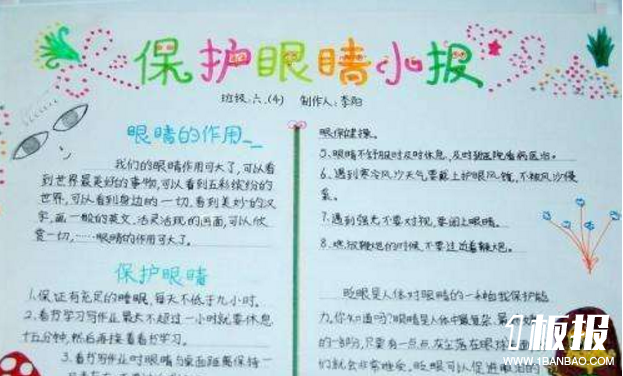 保护眼睛小报
班级:六.(4) 制作人:李阳
眼睛的作用
我们的眼睛作用可大了,可以看
到世界最美好的事物,可以看到五彩缤纷的
世界,可以看到身边的一切,看到美妙的汉
字,画一般的英文,活灵活现的画面,可以欣
赏一切,……眼睛的作用可大了。
保护眼睛
1.保证有充足的睡眠,每天不低于九小时。
2.看书学习写作业最长不超过一小时就要休息
十五分钟,然后再接着看书学习。
3.看书写作业时眼睛与桌面距离保持一
眼保健操。
5、眼睛不舒服时及时休息,及时到医院看病医治。
6、遇到寒冷风沙天气要戴上护眼风镜,不被风沙侵
袭。
7、遇到强光不要对视,要闭上眼睛。
8、燃放鞭炮的时候,不要过近看鞭炮。
眨眼是人体对眼睛的一种自我保护能
力,你知道吗?眼睛是人体中最复杂、
的一部分,只要有一点点灰尘落在眼
们就会非常难受。眨眼可以促进眼泪的
板报
WWW.1BANBAO.COM